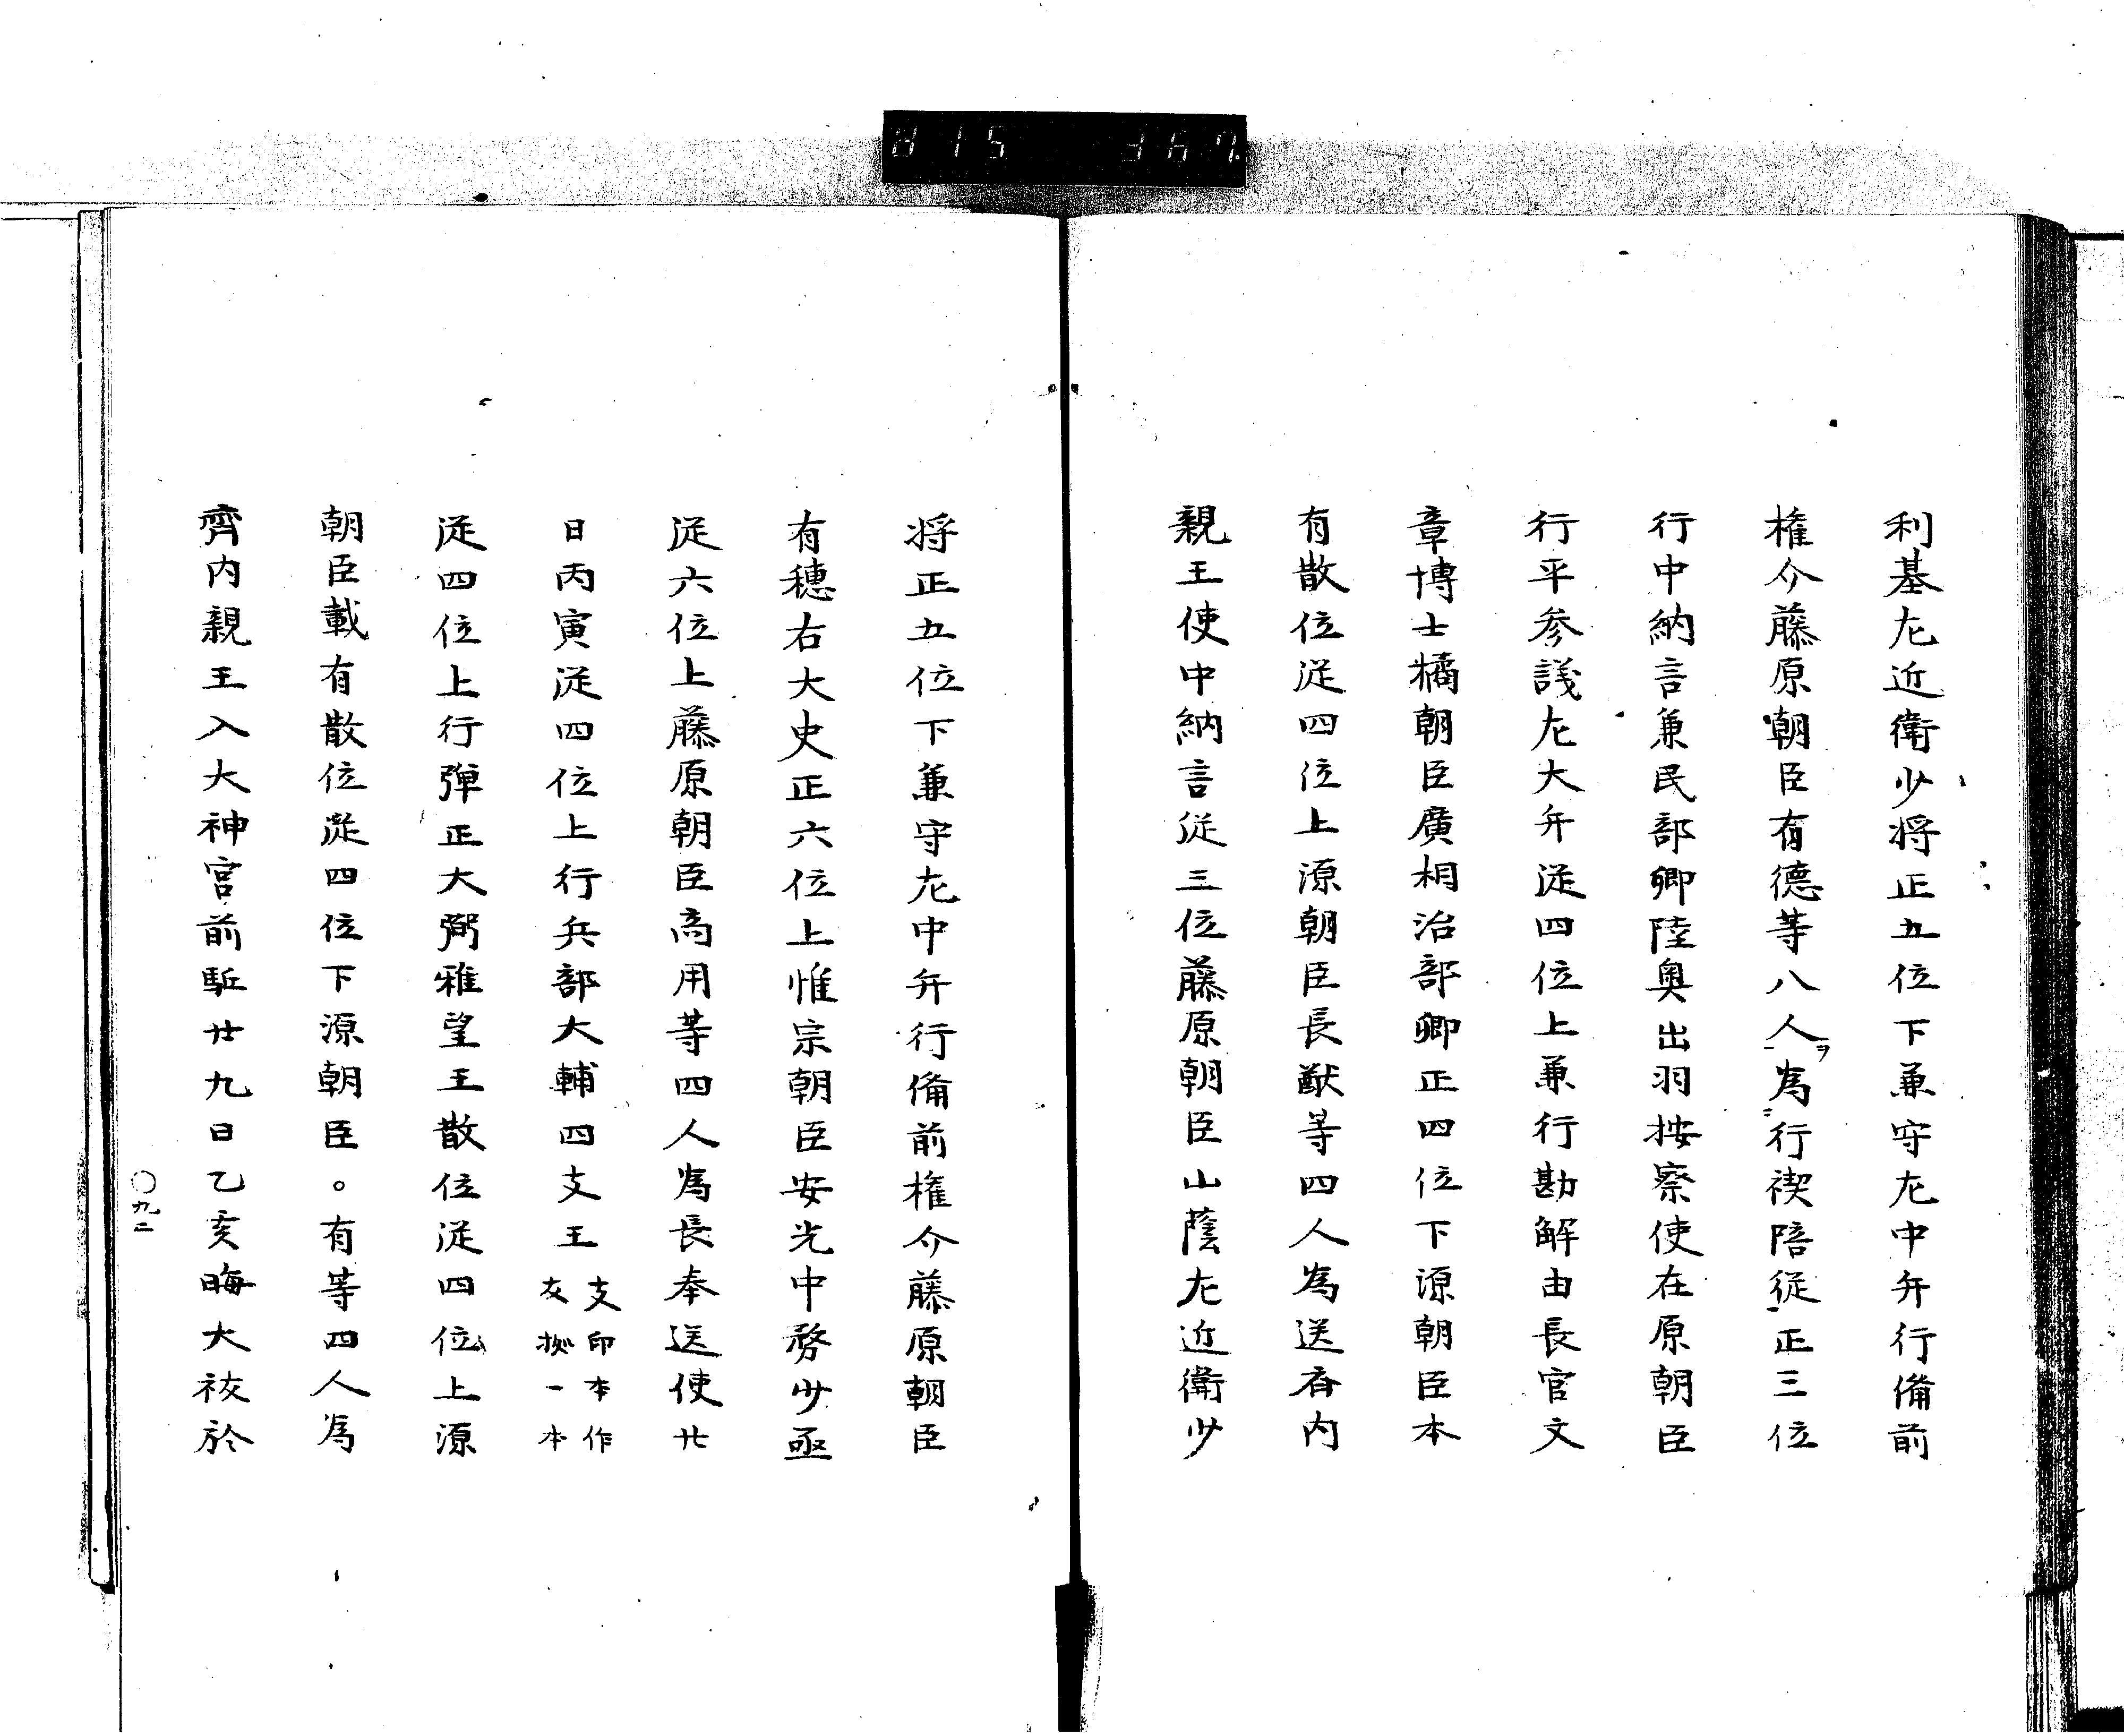 利基左近衛少将正五位下兼守左中弁行備前
権介藤原朝臣有德等八人為行禊陪従正三位
行中納言兼民部卿陸奥出羽按察使在原朝臣
行平参議左大弁従四位上兼行勘解由長官文
章博士橘朝臣廣相治部卿正四位下源朝臣本
有散位従四位上源朝臣長猷等四人為送斉内
親王使中納言従三位藤原朝臣山蔭左近衛少
将正五位下兼守左中弁行備前権介藤原朝臣
有穗右大史正六位上惟宗朝臣安光中務少丞
従六位上藤原朝臣高用等四人為長奉送使廿
日丙寅従四位上行兵部大輔四支王支印本作
友拠一本
従四位上行弾正大弼雅望王散位従四位上源
朝臣載有散位従四位下源朝臣。有等四人為
齊内親王入大神宮前駈廿九日乙亥晦大祓於
〇九二
815 367